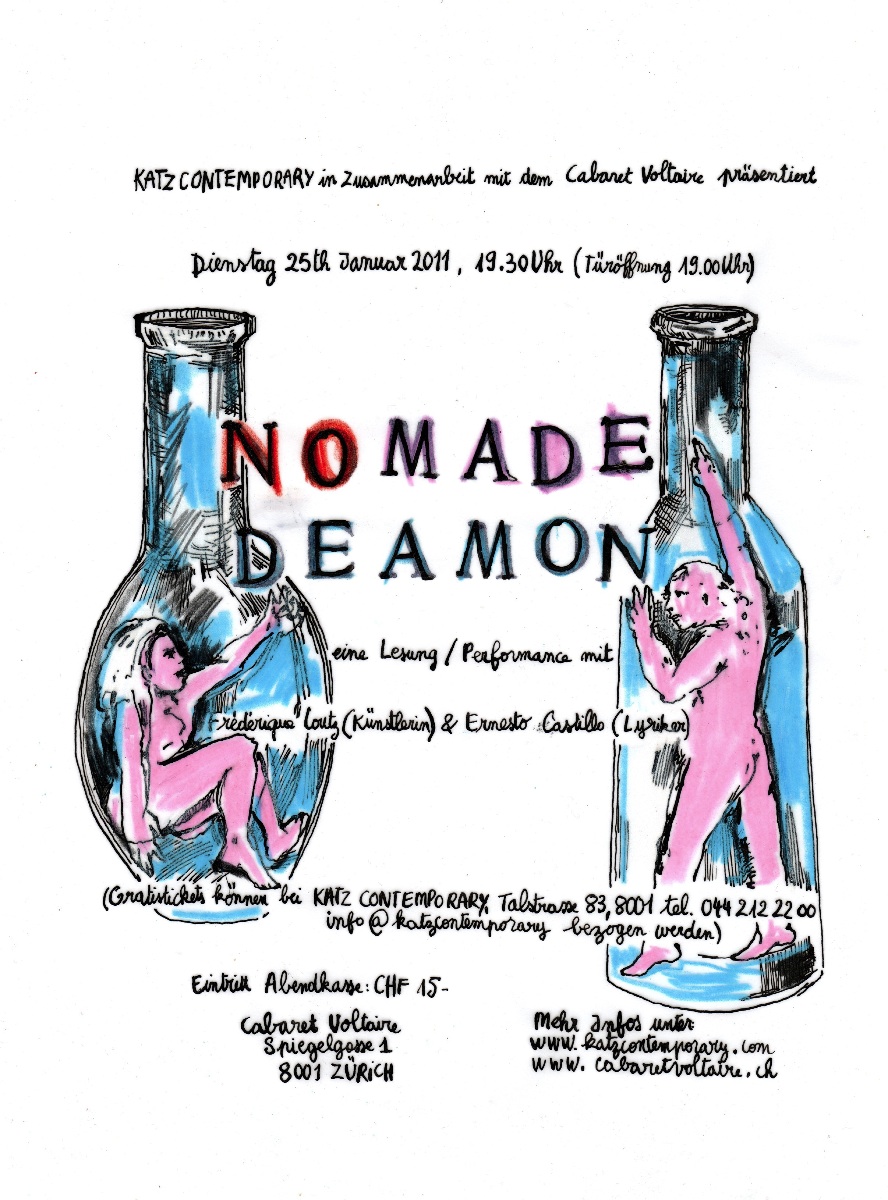 KATZ CONTEMPORARY in Zusammenarbeit mit dem Cabaret Voltaire präsentiert
Dienstag 25th Januar 2011, 19.30 Uhr (Türöffnung 19.00 Uhr)
NOMADE
DEAMON
eine Lesung / Performance mit
Frédérique Loutz (Künstlerin) & Ernesto Castillo (Lyriker)
(Gratistickets können bei KATZ CONTEMPORARY, Talstrasse 83, 8001 tel. 044 212 22 00
info@katzcontemporary bezogen werden)
Eintritt Abendkasse: CHF 15-
Cabaret Voltaire
Spiegelgasse 1
8001 ZÜRiCH
Mehr Infos unter:
www.katzcontemporary.com
www.cabaretvoltaire.ch